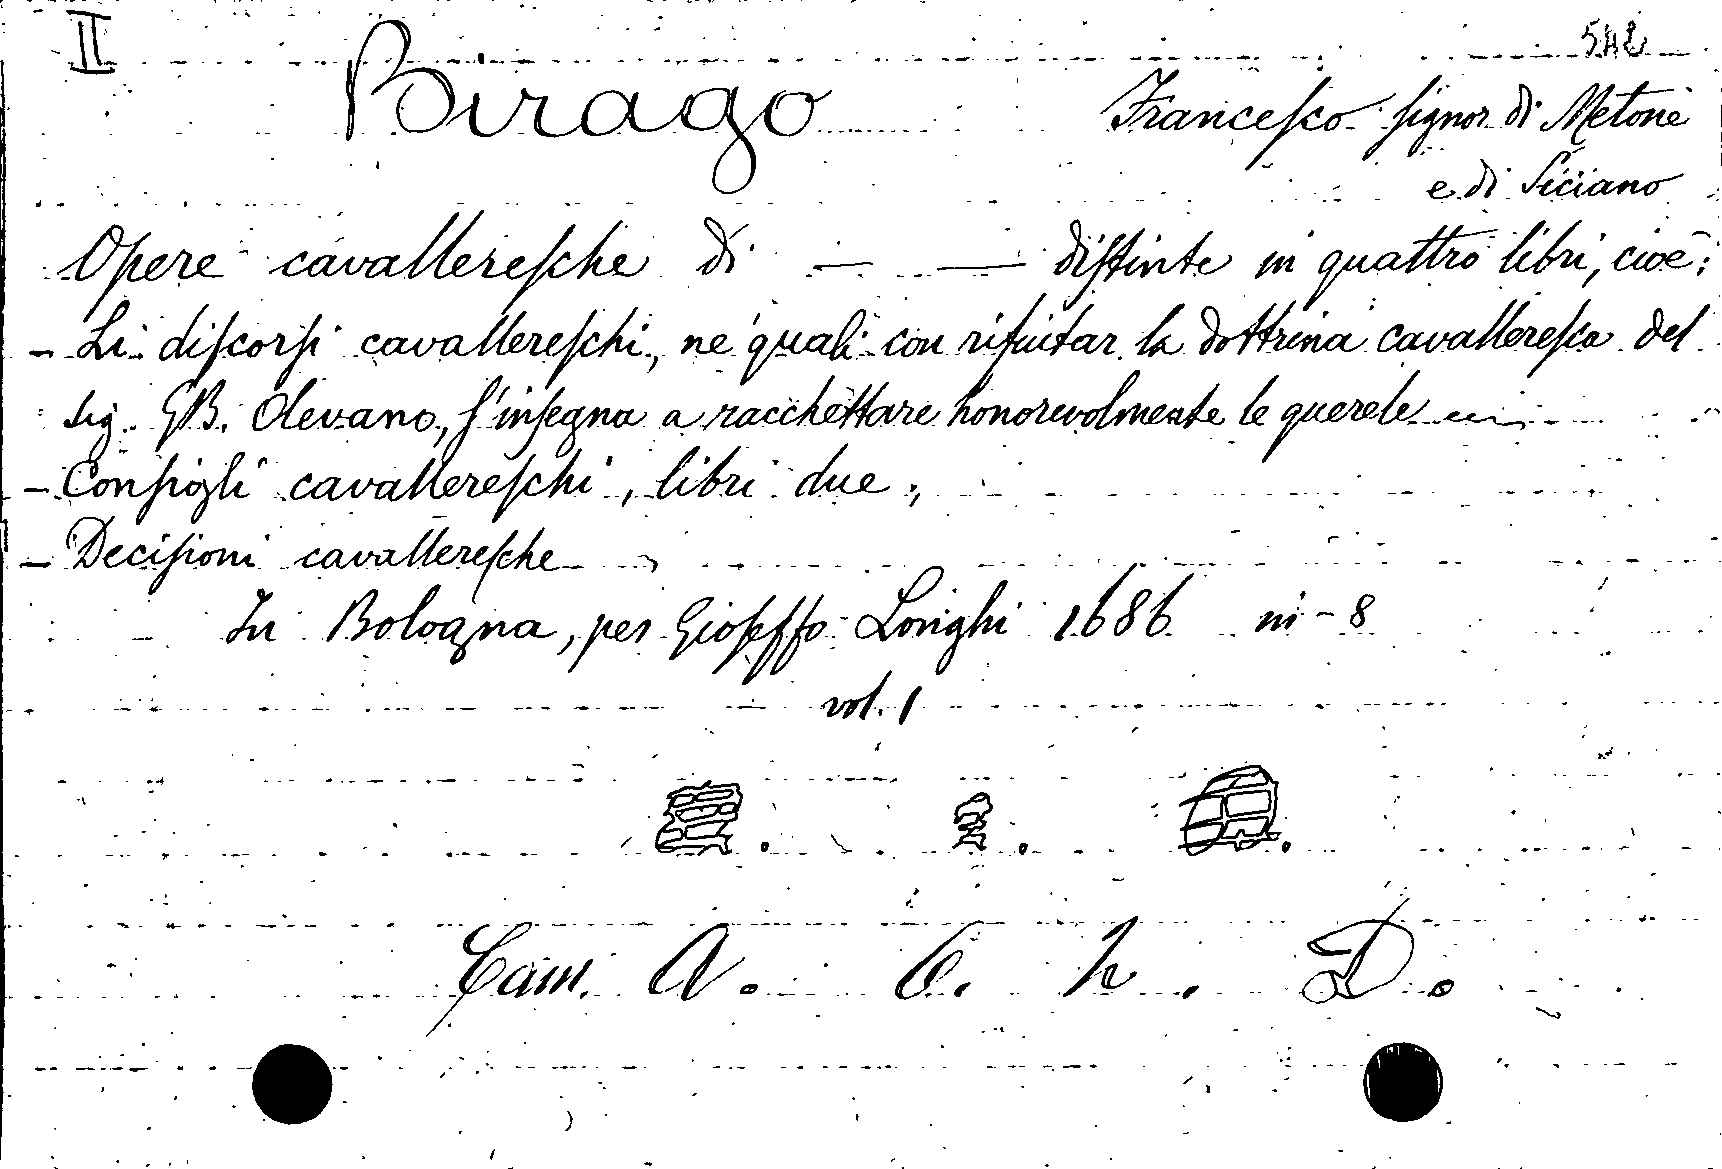 II
542
Birago
Francesco signor di Metone
e di Siciano
Opere cavalleresche di — — distinte in quattro libri, cioè:
- Li discorsi cavallereschi, ne' quali con rifiutar la dottrina cavalleresca del
sig. GB. Olevano, s'insegna a racchettare honorevolmente le querele
- Consigli cavallereschi, libri due;
- Decisioni cavalleresche
In Bologna, per Gioseffo Longhi 1686 in-8
vol. 1
Cam. A. 6. h. D.